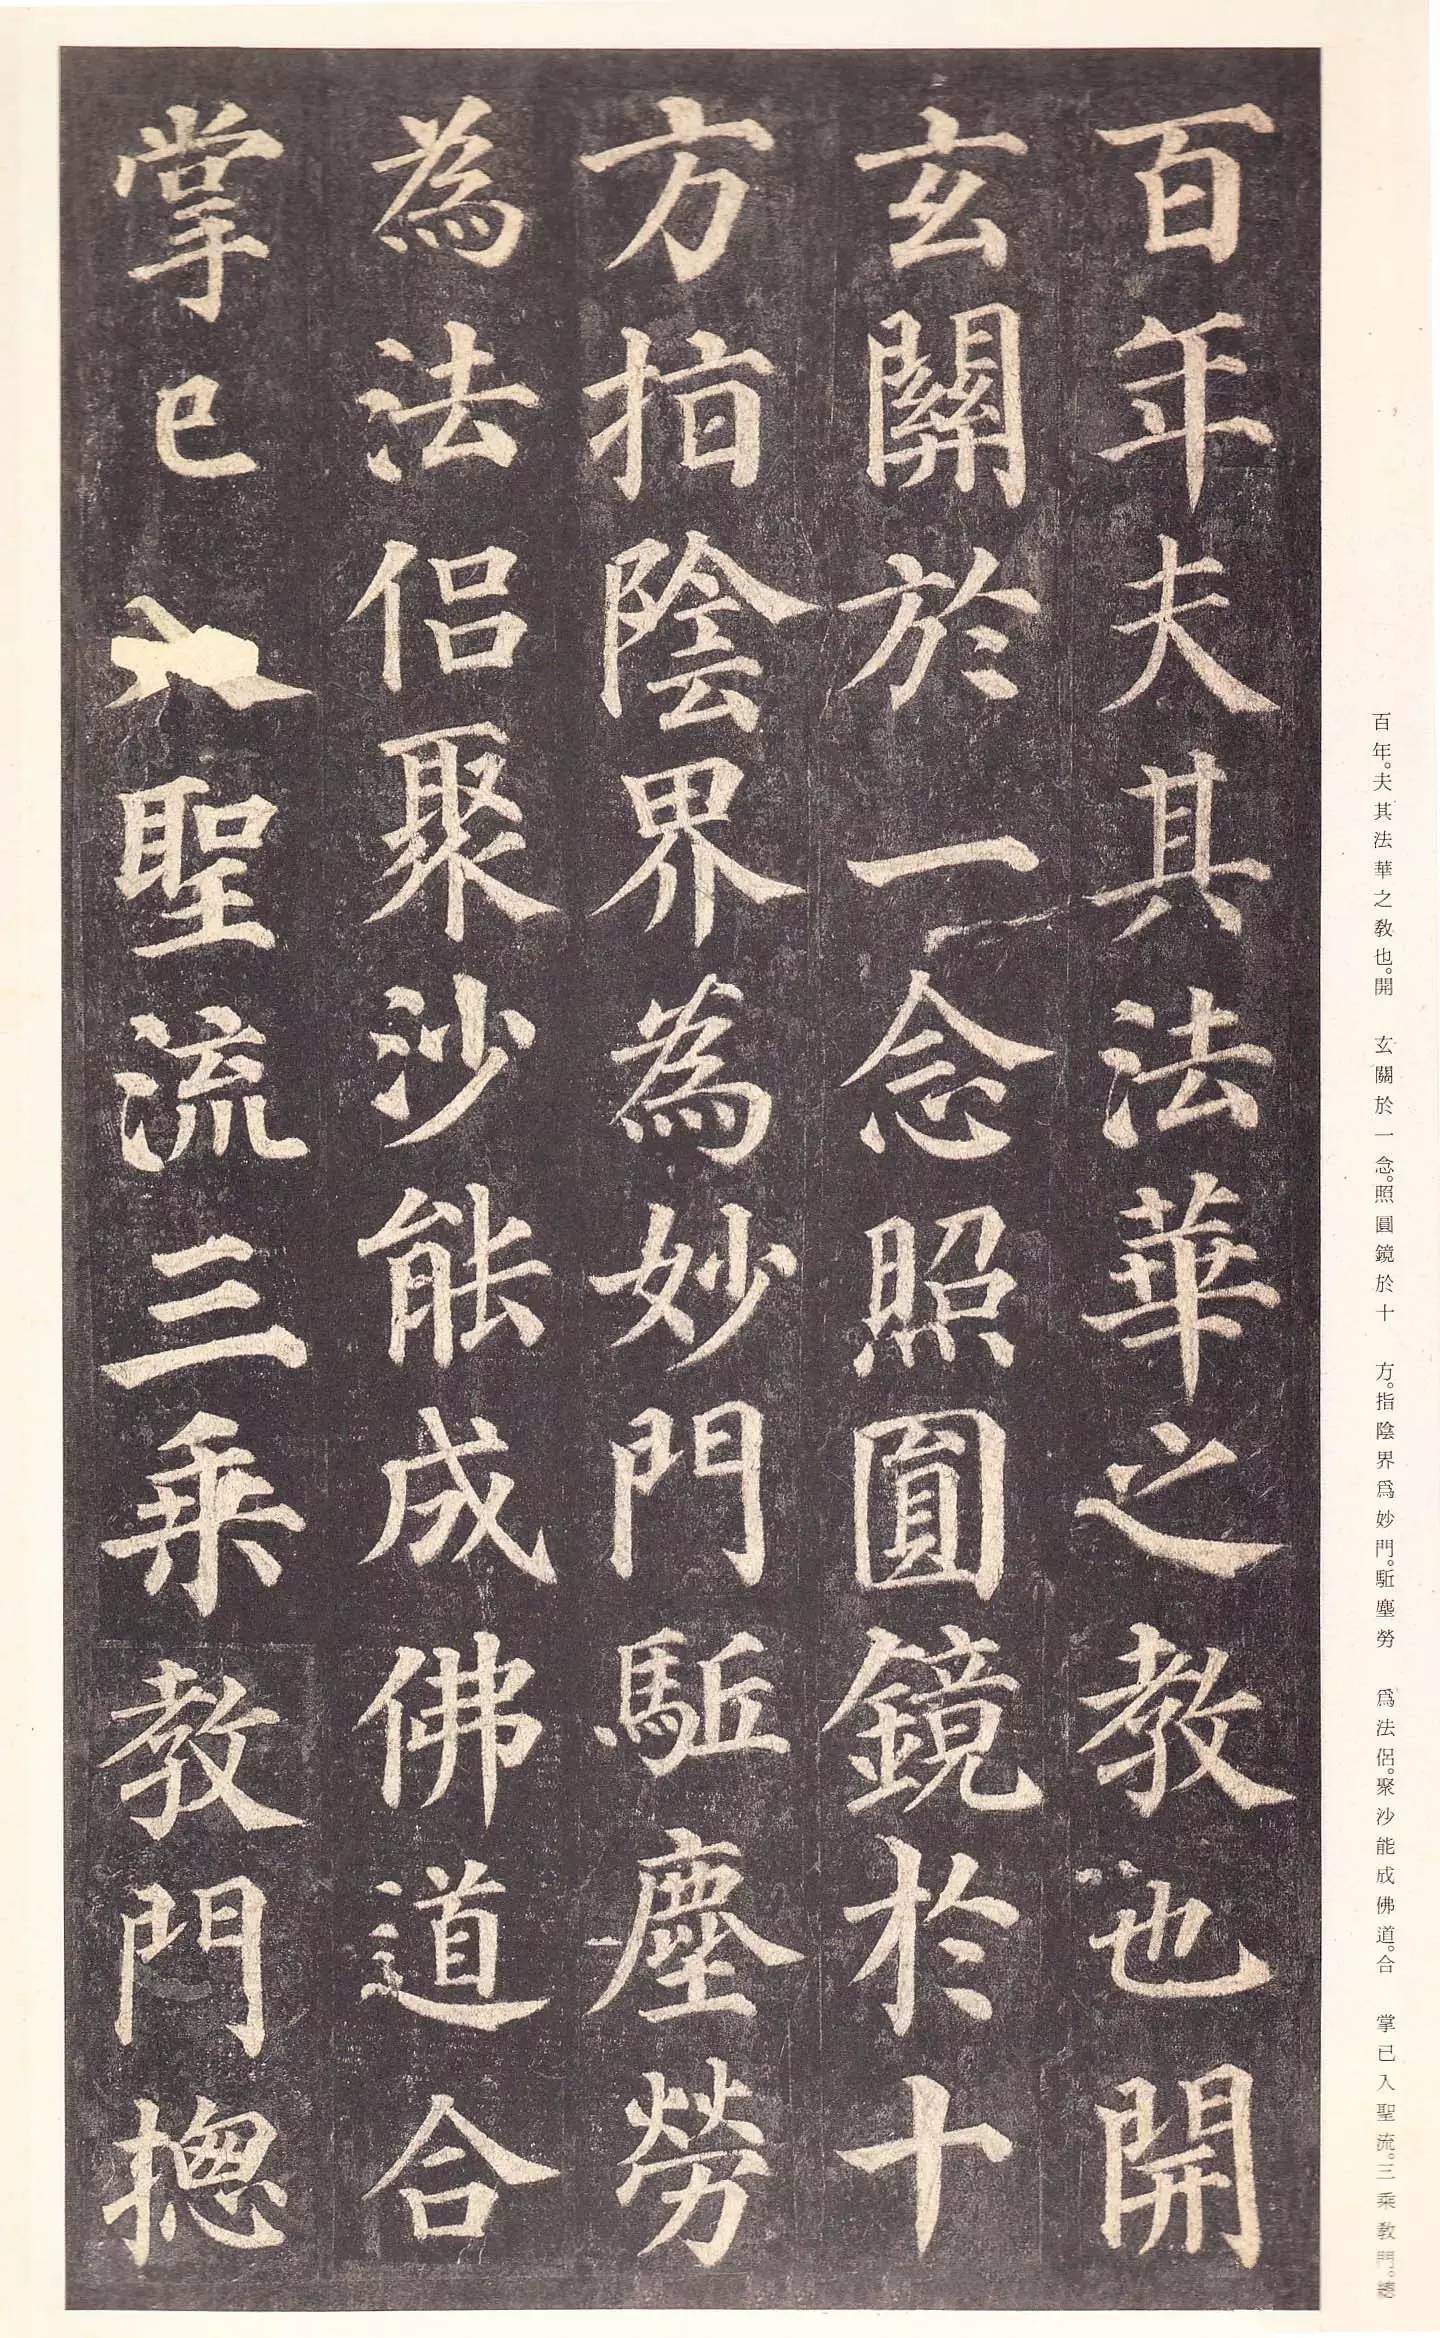 百年夫其法華之教也開
玄關於一念照圓鏡於十
方指陰界為妙門駈塵勞
為法侶聚沙能成佛道合
掌已入聖流三乘教門揔
百年。夫其法華之教也。開　玄關於一念。照圓鏡於十　方。指陰界爲妙門。駈塵勞　爲法侶。聚沙能成佛道。合　掌已入聖流。三乘教門。總